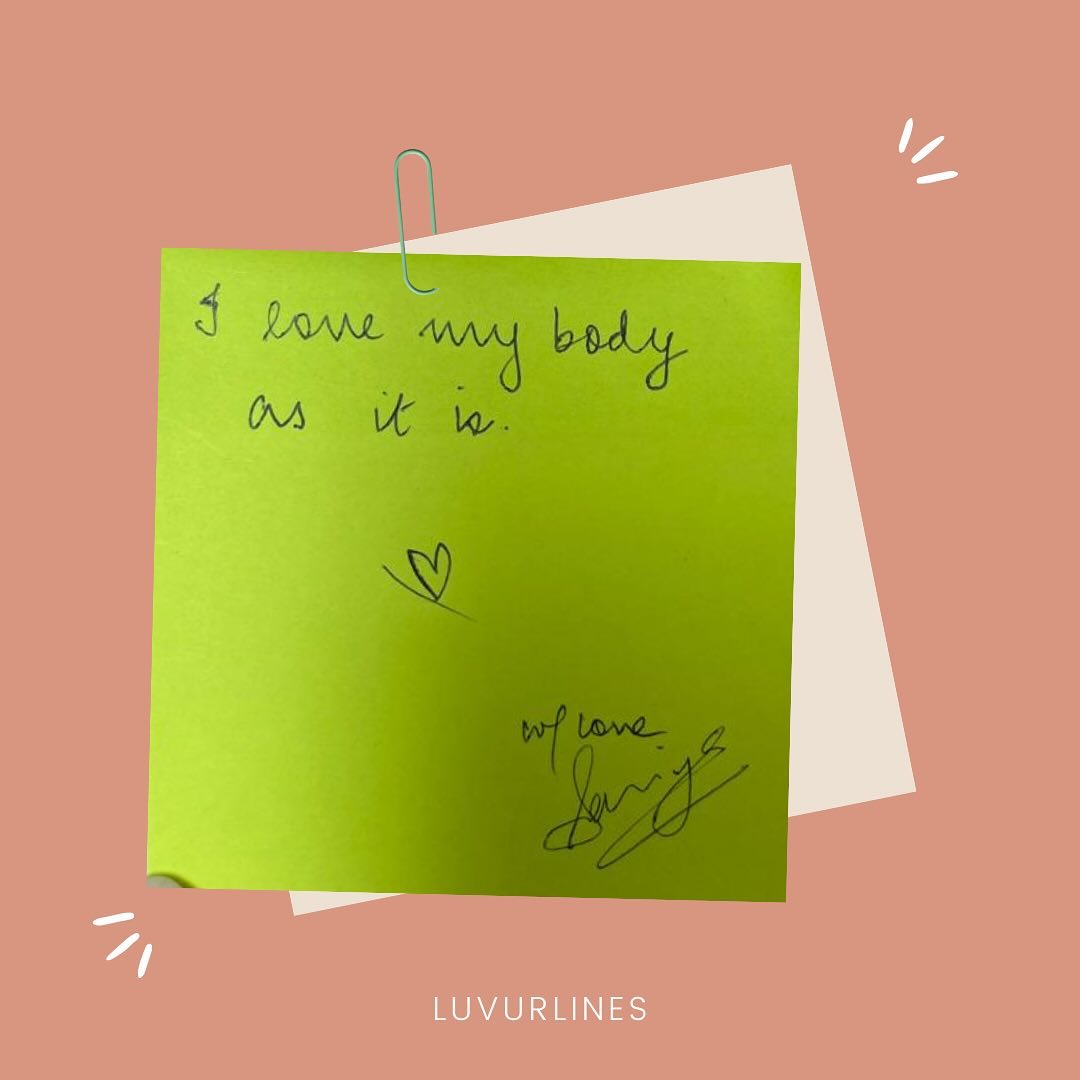 I love my body
as it is.
w/ love
Saniya
LUVURLINES